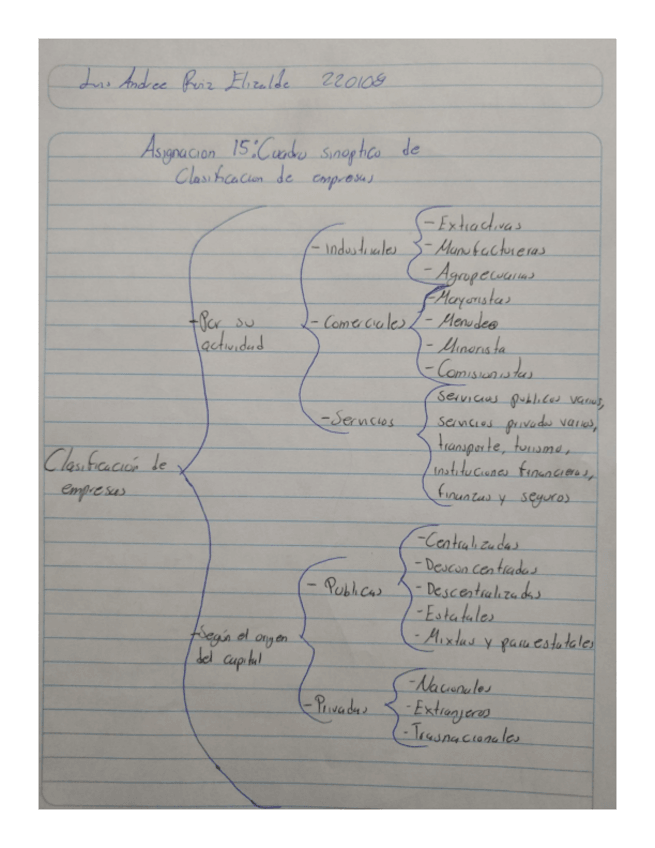 Luis Andree Ruiz Elizalde 220108
Asignacion 15: Cuadro sinoptico de
Clasificacion de empresas
Clasificación de
empresas
-Por su
actividad
- Industriales
- Extractivas
- Manufactureras
- Agropecuarias
- Comerciales
- Mayoristas
- Menudeo
- Minorista
- Comisionistas
- Servicios
Servicios publicos varios,
servicios privados varios,
transporte, turismo,
instituciones financieras,
finanzas y seguros
-Según el origen
del capital
- Publicas
- Centralizadas
- Desconcentradas
- Descentralizadas
- Estatales
- Mixtas y paraestatales
- Privadas
- Nacionales
- Extranjeros
- Trasnacionales